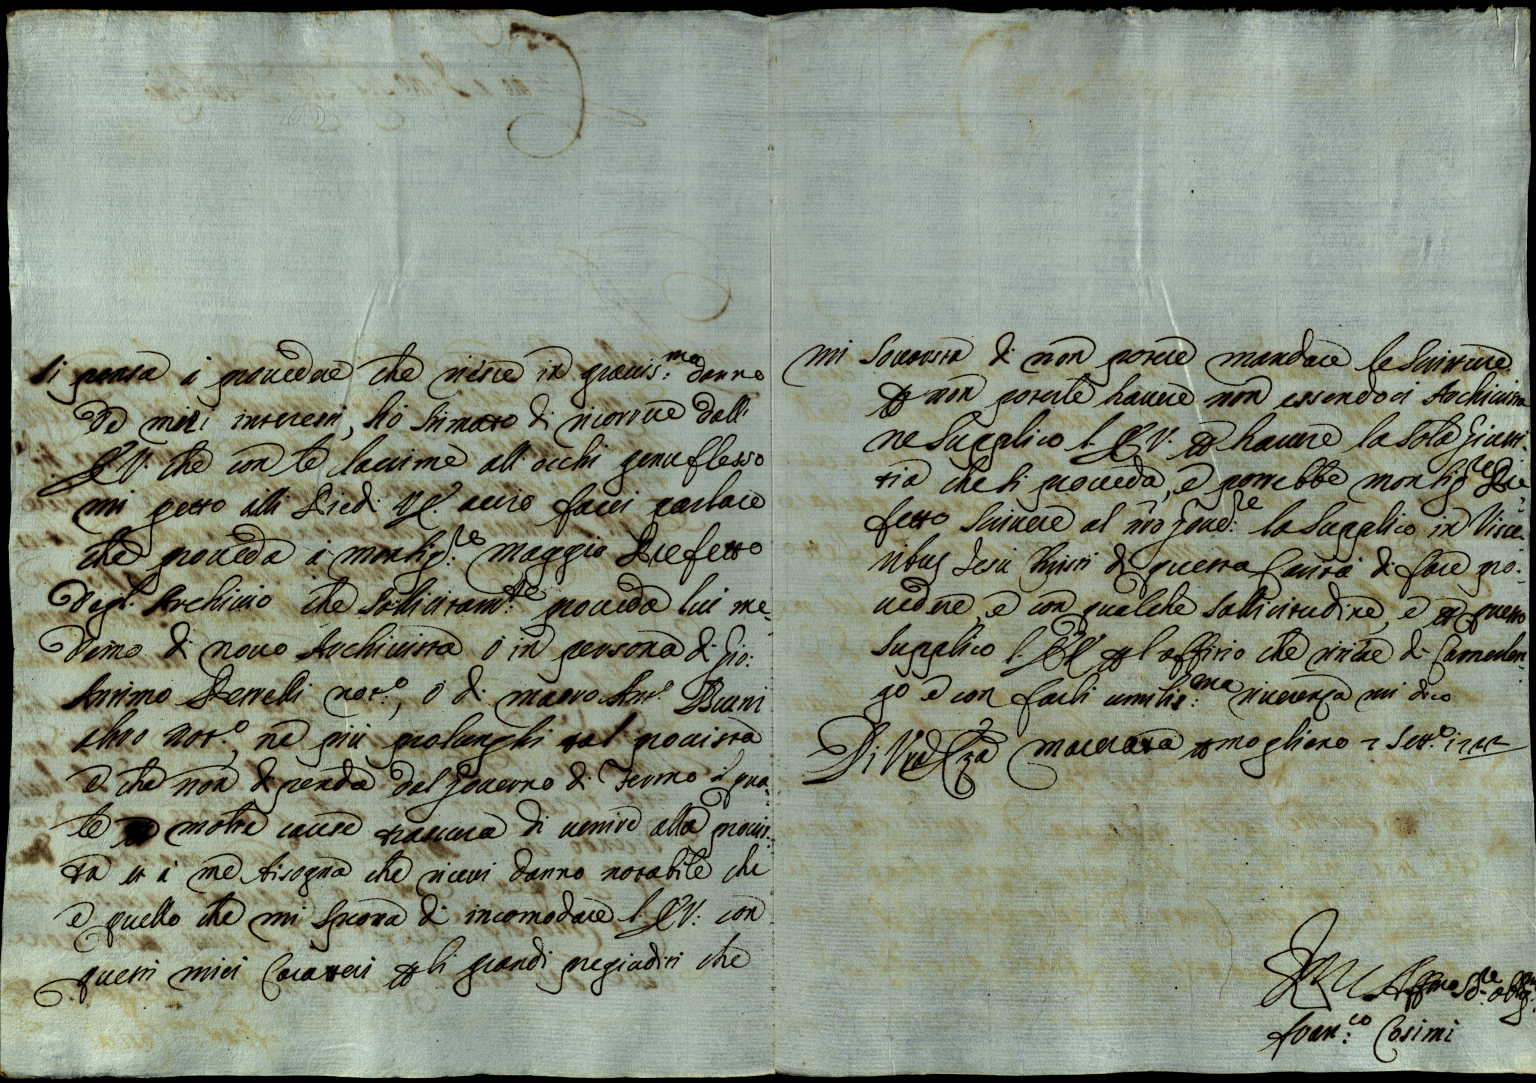 si pensa à provedere che riesce in gravis.ma danno
de miei interessi, hò stimato di ricorrere dall'
E.V. che con le lacrime all occhi genuflesso
mi getto alli Piedi V.E. acciò facci parlare
che proveda à monsig.re maggio Prefetto
degl'Archivio che sollicitam.te proveda lui me-
demo di novo Archivista ò in persona di Gio:
Antimo Pervelli not.o, ò di marco Ant.o
altro not.o, nè più prolunghi tal provista
e che non dipenda dal Governo di Fermo il qua-
le molte cause trascura di venire alla provis-
ta et à me bisogna che ricevi danno notabile che
e quello che mi sprona di incomodare l'E.V. con
questi miei Caratteri p li grandi pregiuditi che
mi sovrasta di non potere mandare le scritture
p non poterle havere non essendoci Archivista
ne supplico l'E.V. p havere la sola Giusti-
tia che si proveda, e potrebbe monsig.re Pre-
fetto scrivere al n̄ro Gov.re la supplico in Visce-
ribus Jesu Christi di questa Carità di fare pro-
vedere, e con qualche sollicitudine, e p questo
supplico l'E.V. p l'offitio che ritiene di Camerlen-
go e con farli umilis.ma riverenza mi dico
Di V.ra E.za Macerata p Mogliano 2 Sett.e
Aff.mo S.re obblig.
Fran.co Cosimi